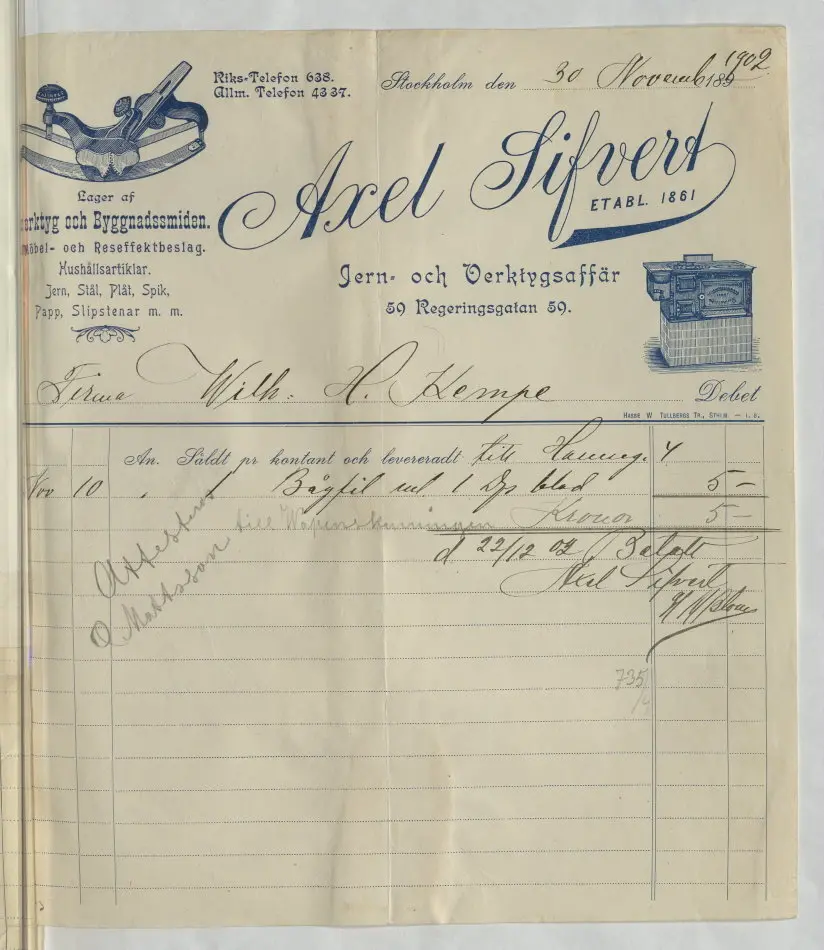 Riks-Telefon 638.
Allm. Telefon 4337.
Stockholm den 30 Novemb 189 1902
Axel Sifvert
ETABL. 1861
Lager af
erktyg och Byggnadssmiden.
öbel- och Reseffektbeslag.
Hushållsartiklar.
Jern, Stål, Plåt, Spik,
Papp, Slipstenar m. m.
Jern- och Verktygsaffär
59 Regeringsgatan 59.
Firma Wilh. H. Kempe Debet
HASSE W. TULLBERGS TR., STHLM. — I. B.
An. Såldt pr kontant och levereradt till
Nov 10 1 Bågfil ml 1 Dz blad 5 -
till Kronor 5 -
d 22/12 02 Betalt
Axel Sifvert
Attesteras
O Mattsson
735